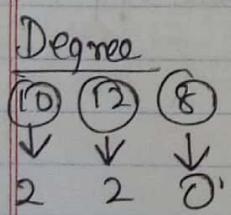 Degree
10 12 8
↓ ↓ ↓
2 2 0